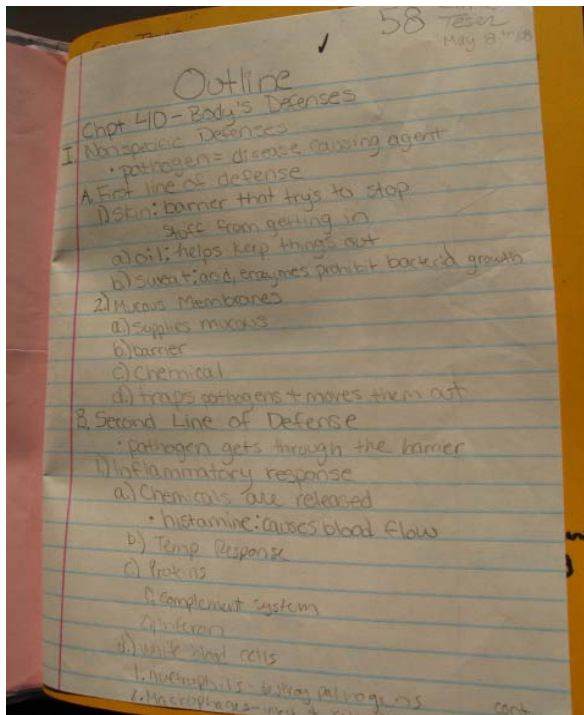 58
May 8th 08
Outline
Chpt 40 - Body's Defenses
I. Nonspecific Defenses
• pathogen = disease causing agent
A. First line of defense
1) Skin: barrier that trys to stop
stuff from getting in
a) oil: helps keep things out
b) sweat: acid, enzymes prohibit bacterial growth
2.) Mucous Membranes
a) supplies mucous
b) barrier
c) Chemical
d.) traps pathogens + moves them out
B. Second Line of Defense
• pathogen gets through the barrier
1.) Inflammatory response
a) Chemicals are released
• histamine: causes blood flow
b) Temp Response
c) Proteins
complement system
d.) White blood cells
1. pathogens
2. Macrophages
cont